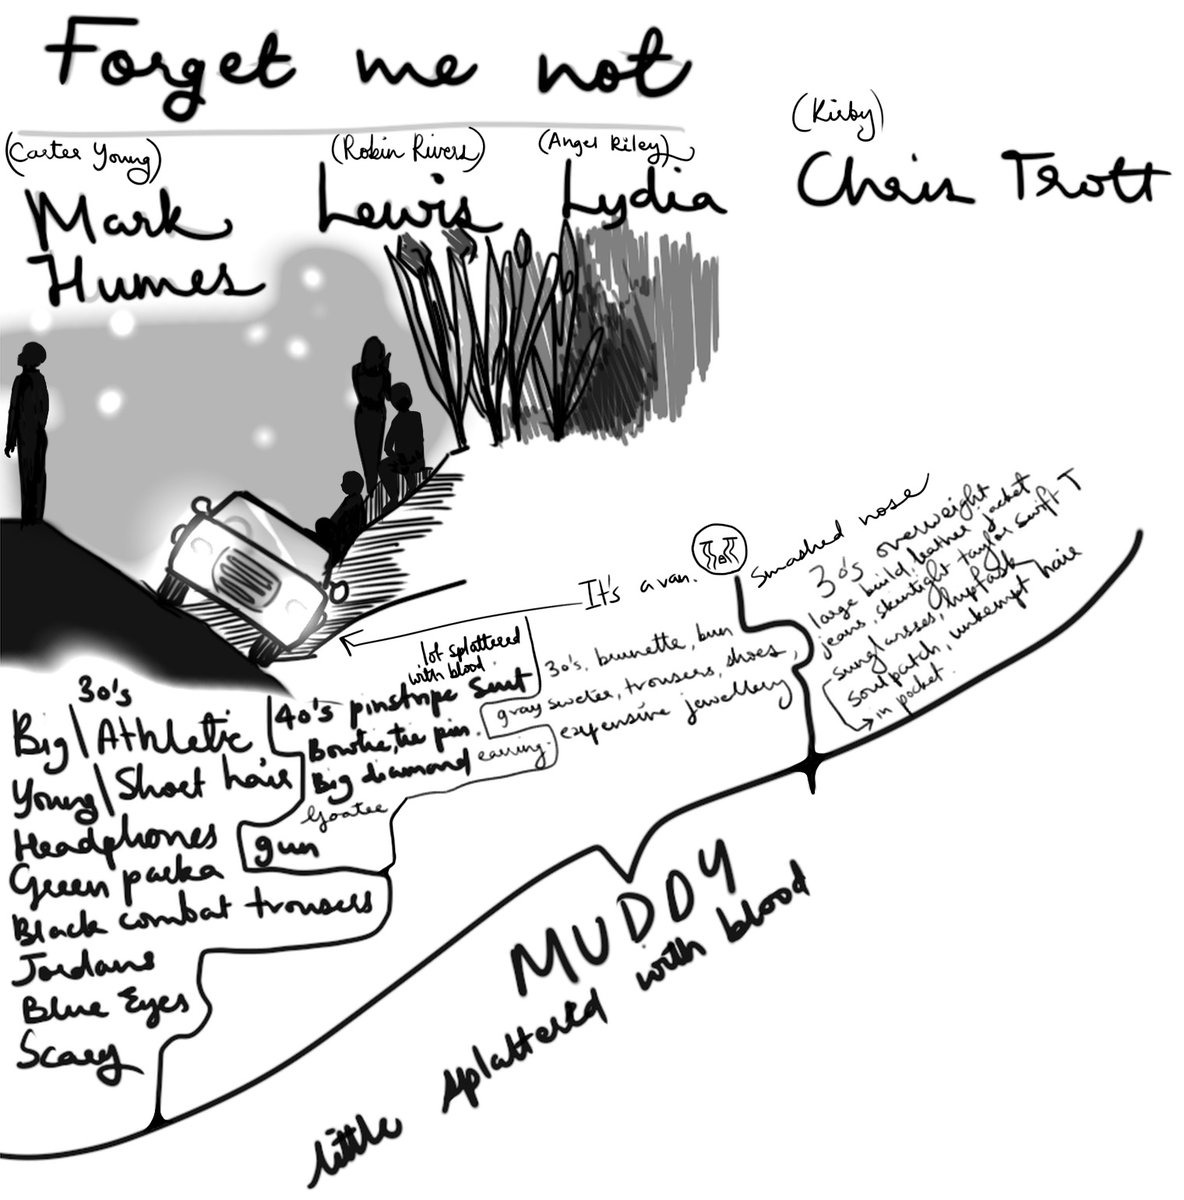 Forget me not
(Carter Young)
Mark
Humes
(Robin Rivers)
Lewis
(Angel Riley)
Lydia
(Kirby)
Chris Trott
It's a van.
Smashed nose
30's overweight
large build, leather jacket
jeans, skintight taylor swift T
sunglasses, hipflask
soulpatch, unkempt hair
in pocket.
30's, brunette, bun
gray sweter, trousers, shoes,
expensive jewellery
lot splattered
with blood.
40's pinstripe suit
Bowtie, tie pin.
Big diamond earring.
Goatee
gun
30's
Big Athletic
Young Short hair
Headphones
Green parka
Black combat trousers
Jordans
Blue Eyes
Scary
MUDDY
little splattered with blood